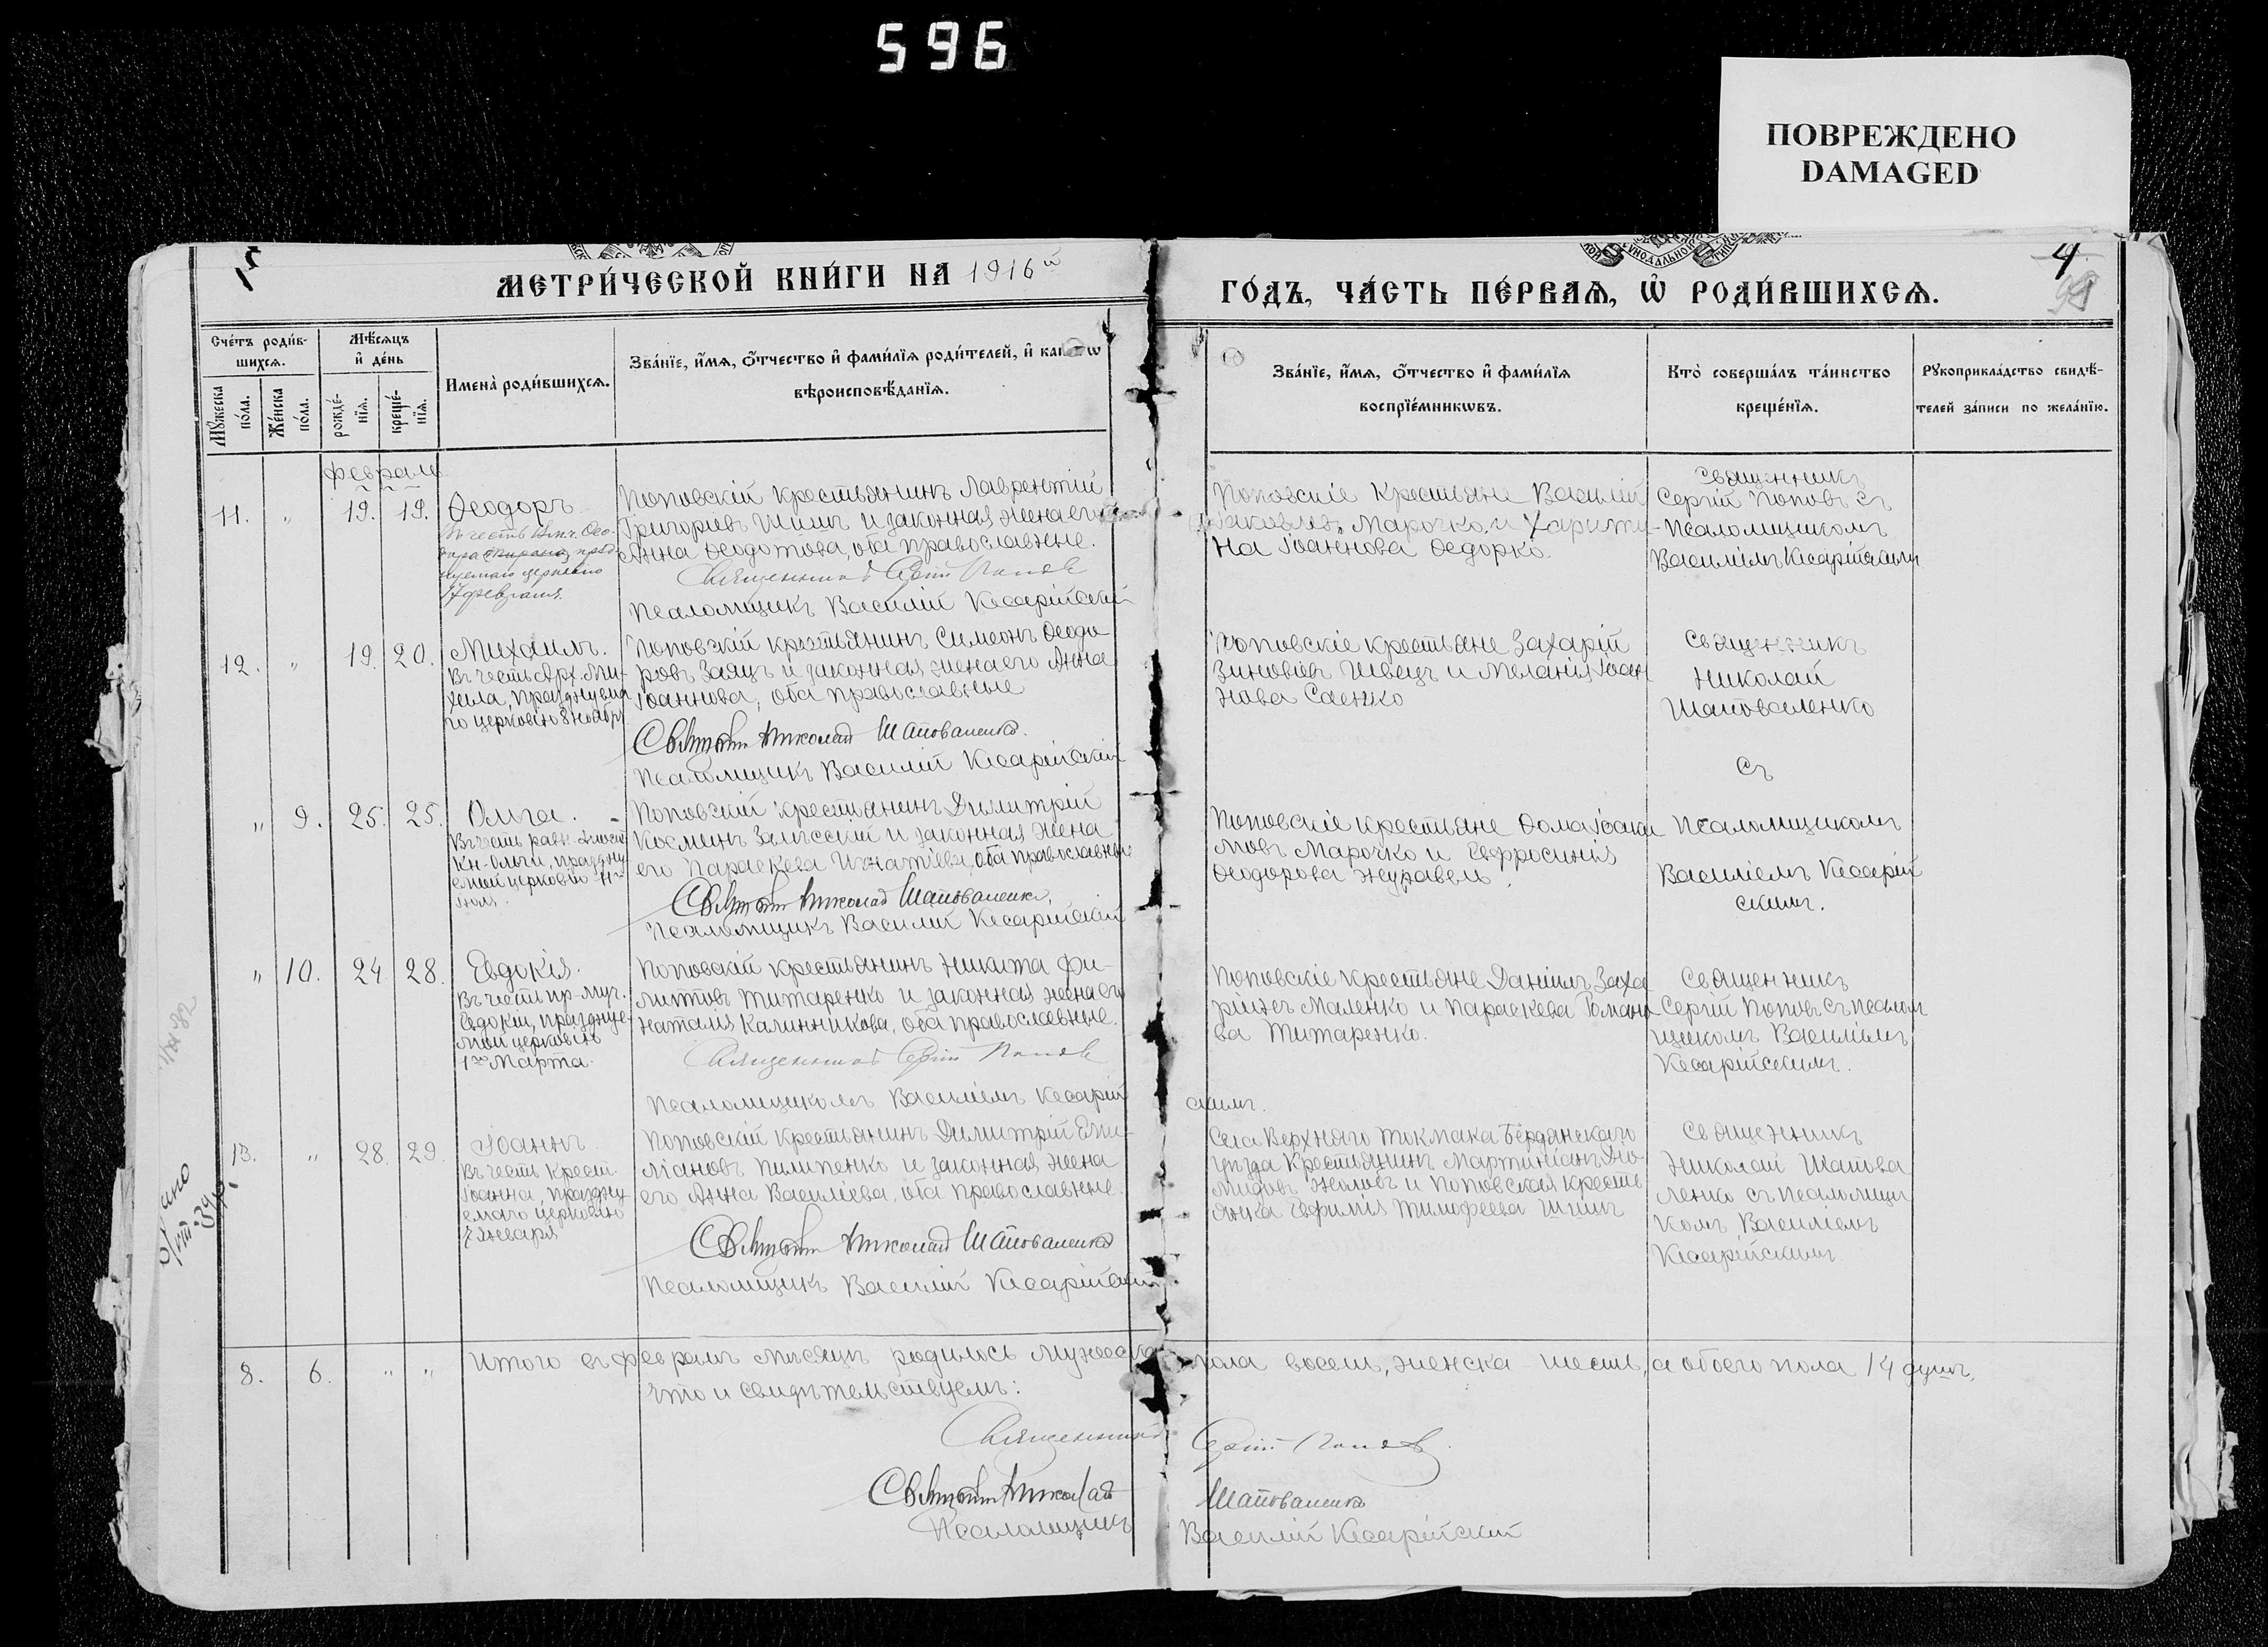 596
ПОВРЕЖДЕНО
DAMAGED
5
МЕТРИ́ЧЕСКОЙ КНИ́ГИ НА 1916й
ГО́ДЪ, ЧА́СТЬ ПЕ́РВАѦ, Ѡ҆ РОДИ́ВШИХСѦ.
4
Сче́тъ роди́в-
шихсѧ.
Мѣ́сѧцъ
и҆ де́нь
Мꙋ́жеска
по́ла.
Же́нска
по́ла.
рожде́-
нїѧ.
креще́-
нїѧ.
Имена̀ роди́вшихсѧ.
Зва́нїе, и҆́мѧ, ѻ҆́тчество и҆ фами́лїѧ роди́телей, и҆
вѣроисповѣ́данїѧ.
Зва́нїе, и҆́мѧ, ѻ҆́тчество и҆ фами́лїѧ
воспрїе́мникѡвъ.
Кто̀ соверша́лъ та́инство
креще́нїѧ.
Рꙋкоприкла́дство свидѣ́-
телей за́писи по жела́нїю.
Февраль
11. " 19. 19. Ѳеодоръ.
Въ честь Вмч. Ѳео-
дора Тирона, празд
нуемаго церковію
17 февраля.
Поповскій крестьянинъ Лаврентій
Григоріевъ Шишъ и законная жена его
Анна Ѳеодотова, оба православные.
Священникъ Сергій Поповъ
Псаломщикъ Василій Кесарійскій
Поповскіе крестьяне Василій
Іаковлевъ Марочко и Харити-
на Іоаннова Федорко.
Священникъ
Сергій Поповъ съ
Псаломщикомъ
Василіемъ Кесарійскимъ
12. " 19. 20. Михаилъ.
Въ честь Арх. Ми-
хаила, празднуема
го церковію 8 ноября
Поповскій крестьянинъ Симеонъ Ѳеодо
ровъ Заяцъ и законная жена его Анна
Іоаннова, оба православные
Священникъ Николай Шаповаленко.
Псаломщикъ Василій Кесарійскій
Поповскіе крестьяне Захарій
Зиновіевъ Швецъ и Меланія Іоан
нова Саенко
Священникъ
Николай
Шаповаленко
съ
" 9. 25. 25. Ольга.
Въ честь равн.-апост.
Кн. Ольги, праздну
емой церковію 11го
Іюля.
Поповскій крестьянинъ Димитрій
Косминъ Залѣсскій и законная жена
его Параскева Игнатіева, оба православные
Священникъ Николай Шаповаленко,
Псаломщикъ Василій Кесарійскій
Поповскіе крестьяне Ѳома Іоаки
мовъ Марочко и Евфросинія
Ѳеодорова Журавель.
Псаломщикомъ
Василіемъ Кесарій
скимъ.
" 10. 24 28. Евдокія.
Въ честь пр-муч.
Евдокіи, празднуе-
мой церковію
1го Марта.
Поповскій крестьянинъ Никита Фи-
липовъ Титаренко и законная жена его
Наталія Калинникова, оба православные.
Священникъ Сергій Поповъ
Псаломщикомъ Василіемъ Кесарій
скимъ.
Поповскіе крестьяне Даніилъ Заха
ріинъ Маленко и Параскева Романо
ва Титаренко.
Священникъ
Сергій Поповъ съ псалом
щикомъ Василіемъ
Кесарійскимъ.
13. " 28. 29. Іоаннъ.
Въ честь Крест.
Іоанна, праздну
емаго церковію
7 января
Поповскій крестьянинъ Димитрій Еми-
ліановъ Пилипенко и законная жена
его Анна Василіева, оба православные.
Священникъ Николай Шаповаленко
Псаломщикъ Василій Кесарійскій
Села Верхняго Токмака Бердянскаго
уѣзда Крестьянинъ Мартиніанъ Діо-
мидовъ и Поповская кресть
янка Евфимія Тимофеева Шишъ
Священникъ
Николай Шапова
ленко съ псаломщи
комъ Василіемъ
Кесарійскимъ.
8. 6. " " Итого въ февралѣ мѣсяцѣ родилось мужеска пола восемь, женска шесть, а обоего пола 14 душъ,
что и свидѣтельствуемъ:
Священникъ Сергій Поповъ.
Священникъ Николай Шаповаленко
Псаломщикъ Василій Кесарійскій